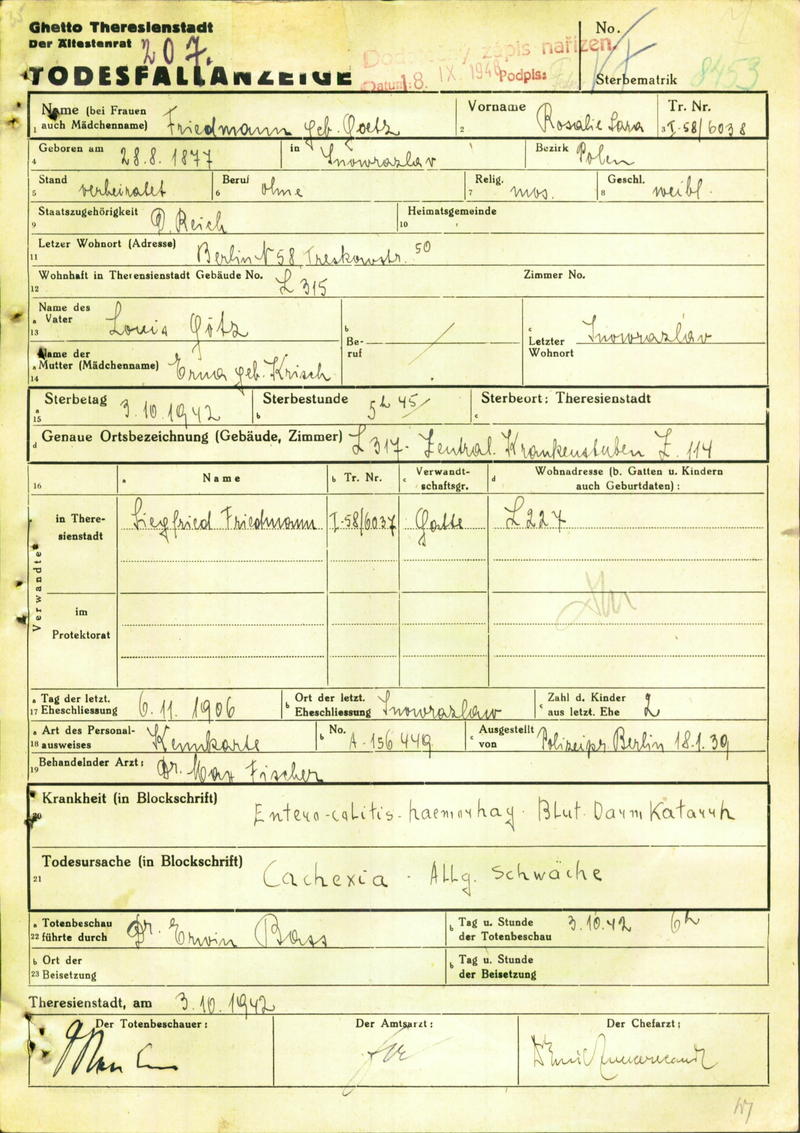 Ghetto Theresienstadt
Der Ältestenrat 207.
TODESFALLANZEIGE
zápis nařízen.
Datum: 18. IX. Podpis:
No.
Sterbematrik 8453
Name (bei Frauen auch Mädchenname) Friedmann geb. Goetz
1
Vorname Rosalie Sara
2
Tr. Nr. I-58/6038
3
Geboren am 28.8.1877
4
in Inowrazlav
5
Bezirk Polen
Stand verheiratet
5
Beruf ohne
6
Relig. mos.
7
Geschl. weibl.
8
Staatszugehörigkeit D. Reich
9
Heimatsgemeinde
10
Letzer Wohnort (Adresse) Berlin N 58, Treskowstr. 50
11
Wohnhaft in Theresienstadt Gebäude No. L 315 Zimmer No.
12
Name des Vater Louis Götz
a 13
b Beruf /
c Letzter Wohnort Inowrazlav
Name der Mutter (Mädchenname) Erna geb. Krisch
a 14
Sterbetag 3.10.1942
a 15
Sterbestunde 5h 45/
b
Sterbeort: Theresienstadt
c
d Genaue Ortsbezeichnung (Gebäude, Zimmer) L 317- Zentral. Krankenstuben Z. 114
16 a Name b Tr. Nr. c Verwandtschaftsgr. d Wohnadresse (b. Gatten u. Kindern auch Geburtdaten):
Verwandte
in Theresienstadt Siegfried Friedmann I-58/6037 Gatte L 227
im Protektorat
a Tag der letzt. 17 Eheschliessung 6.11.1906
b Ort der letzt. Eheschliessung Inowrazlaw
c Zahl d. Kinder aus letzt. Ehe 2
a Art des Personal- 18 ausweises Kennkarte
b No. A-156449
c Ausgestellt von Polizeipr. Berlin 18.1.39
19 Behandelnder Arzt: Dr. Max Fischer
20 Krankheit (in Blockschrift) Entero-colitis-haemorhag. Blut. Darm Katarrh
21 Todesursache (in Blockschrift) Cachexia. Allg. Schwäche
a Totenbeschau 22 führte durch Dr. Erwin Bass
b Tag u. Stunde der Totenbeschau 3.10.42 6h
b Ort der 23 Beisetzung
b Tag u. Stunde der Beisetzung
Theresienstadt, am 3.10.1942
Der Totenbeschauer:
Der Amtsarzt:
Der Chefarzt: